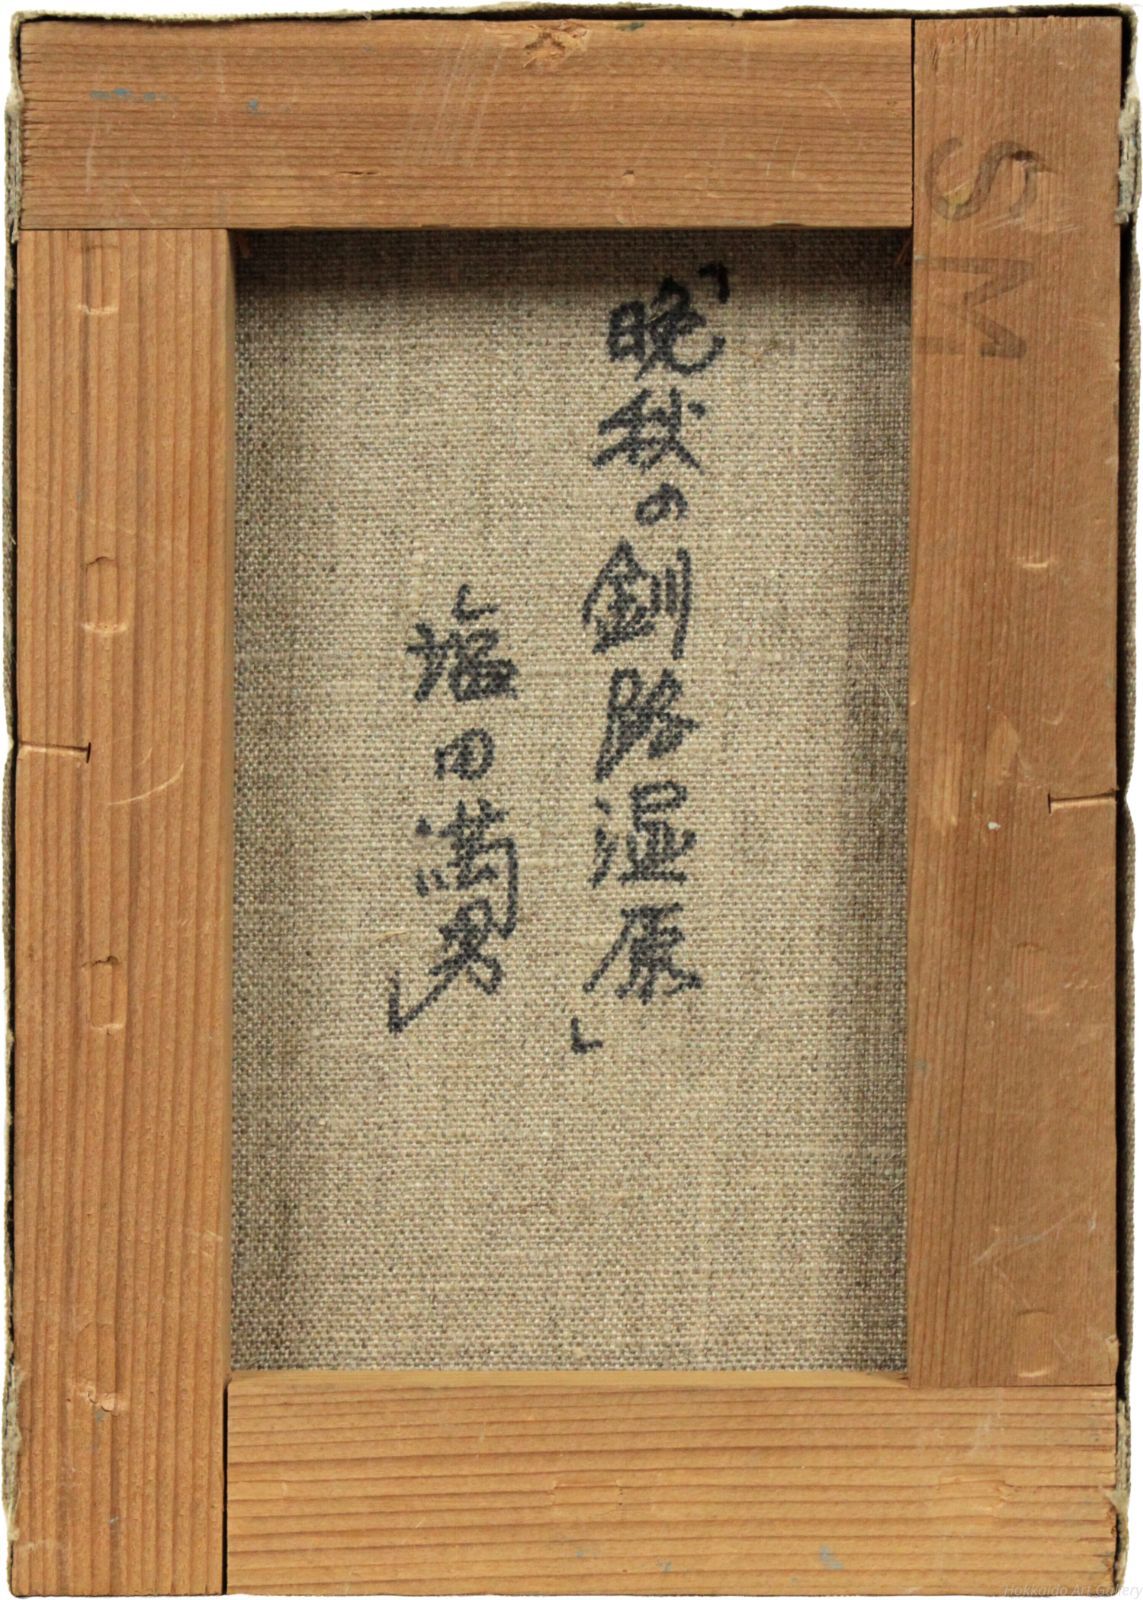 「晩秋の釧路湿原」
塩田満男
SM
Hokkaido Art Gallery